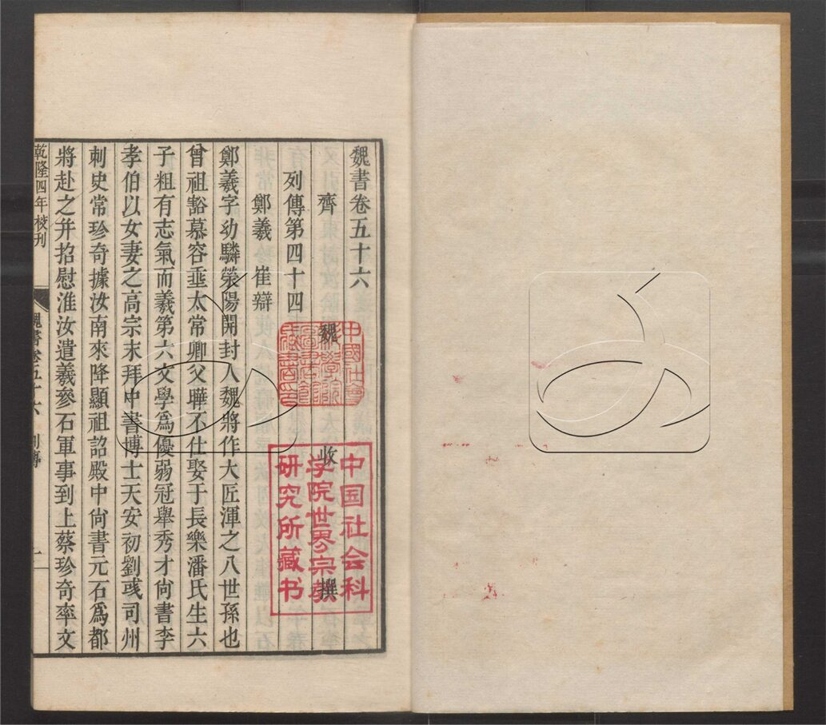 魏書卷五十六
齊魏收撰
列傳第四十四
鄭羲 崔辯
鄭羲字幼驎滎陽開封人魏將作大匠渾之八世孫也
曾祖豁慕容垂太常卿父曄不仕娶于長樂潘氏生六
子粗有志氣而羲第六文學爲優弱冠舉秀才尙書李
孝伯以女妻之高宗末拜中書博士天安初劉彧司州
刺史常珍奇據汝南來降顯祖詔殿中尙書元石爲都
將赴之幷招慰淮汝遣羲參石軍事到上蔡珍奇率文
乾隆四年校刊
魏書卷五十六 列傳 一
中国社会科
学院世界宗教
研究所藏书